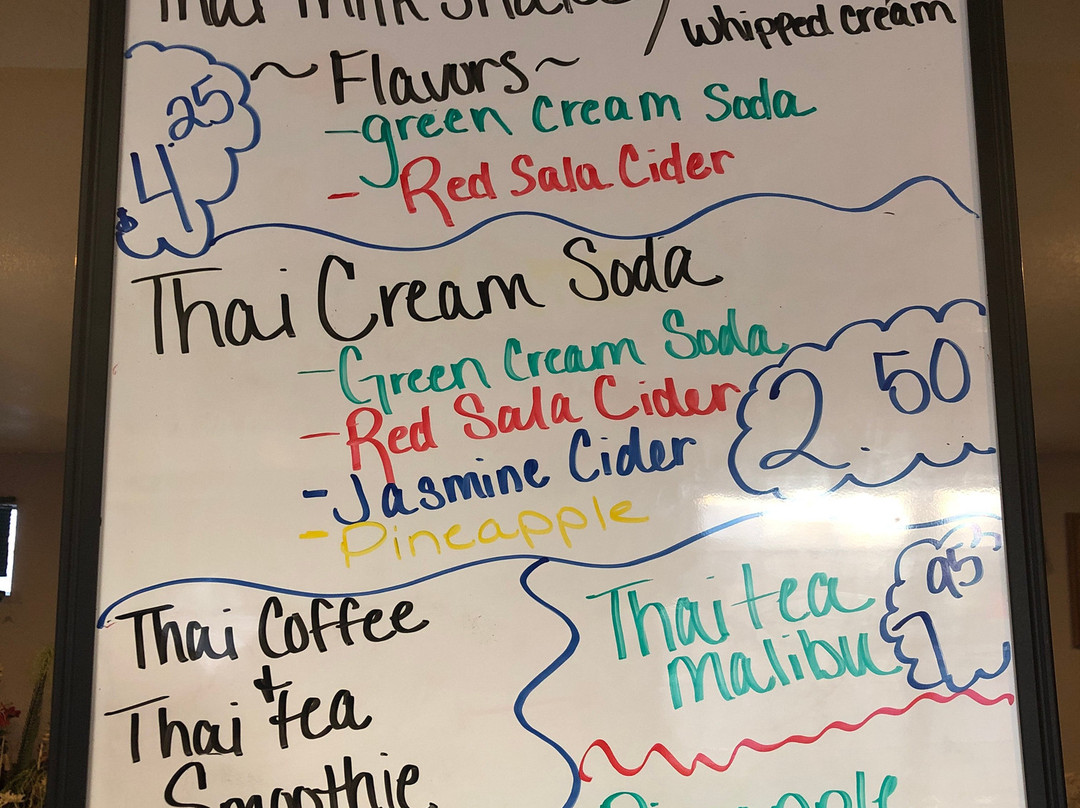 Thai Milk Shake /
whipped cream
~ Flavors ~
- green Cream Soda
- Red Sala Cider
$4.25
Thai Cream Soda
- Green Cream Soda
- Red Sala Cider
- Jasmine Cider
- Pineapple
2.50
Thai Coffee
+
Thai tea
Smoothie
Thai tea
malibu
95
Pineapple